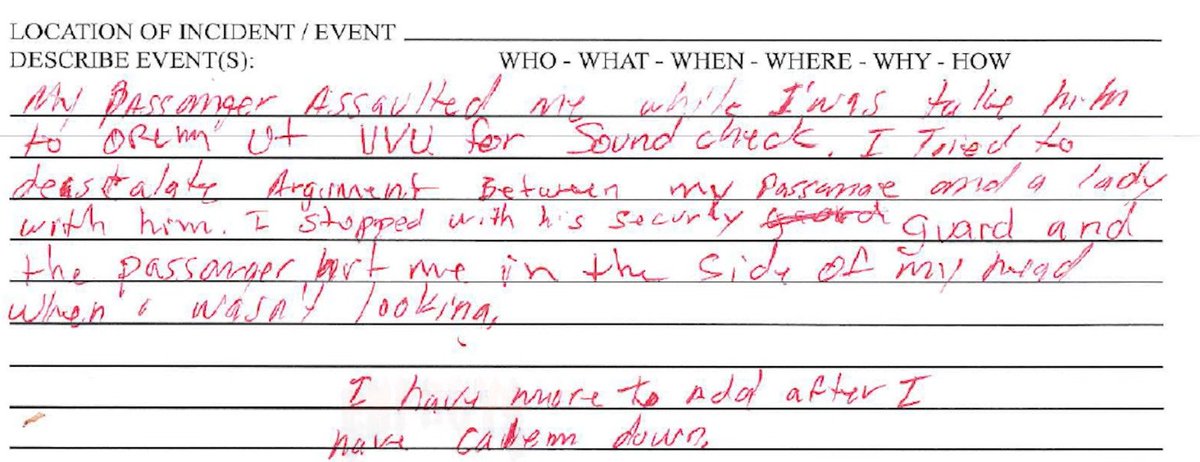 LOCATION OF INCIDENT / EVENT
DESCRIBE EVENT(S): WHO - WHAT - WHEN - WHERE - WHY - HOW
My PASSanger Assaulted me while I was take him
to OREM Ut UVU for Sound check. I Tried to
deescalate Argument Between my Passanae and a lady
with him. I stopped with his security guard and
the passanger hit me in the side of my head
when i wasn't looking.
I have more to Add after I
have calem down.